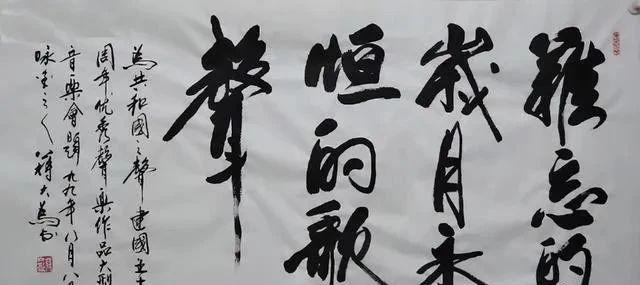 難忘的
歲月永
恒的歌
聲
為共和國之聲建國五十
周年优秀聲樂作品大型
音樂會題九九年八月八日
咏笙之人蔣大為书